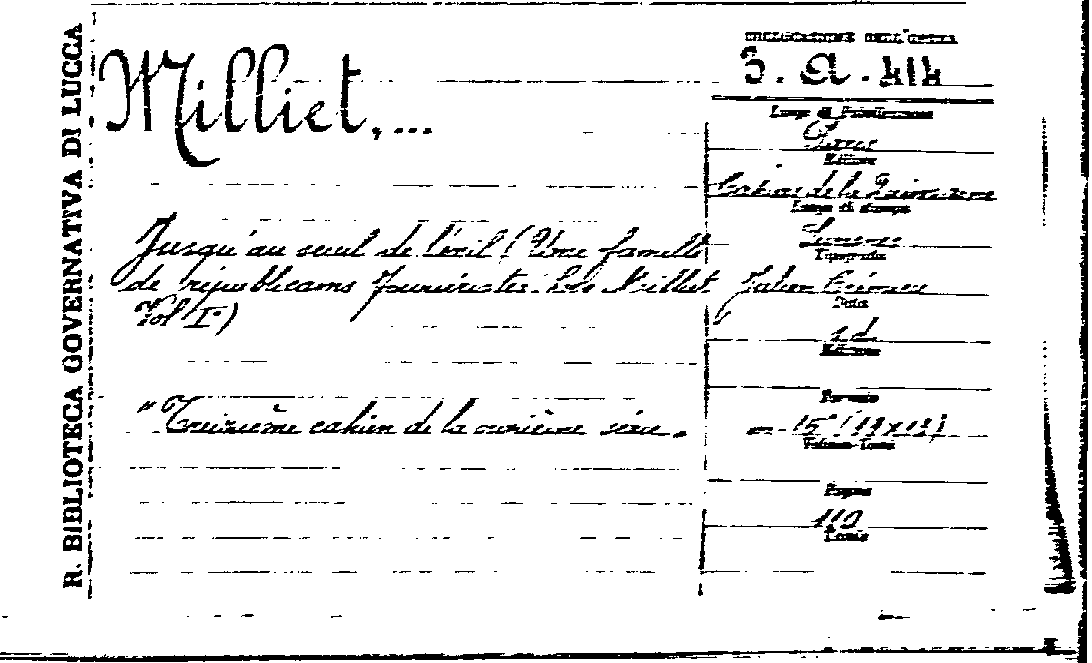 R. BIBLIOTECA GOVERNATIVA DI LUCCA
Milliet,...
Jusqu'au seuil de l'exil (Une famille
de républicains fouriéristes. Les Milliet
Vol I°)
"Treizième cahier de la onzième série.
COLLOCAZIONE DELL'OPERA
3. a. 414
Luogo di Pubblicazione
Paris
Editore
Cahiers de la Quinzaine
Luogo di stampa
Suresnes
Tipografia
Julien Crémieu
Data
s. d.
Edizione
Formato
15° (19x12)
Volume-Tomo
Pagine
110
Tavole